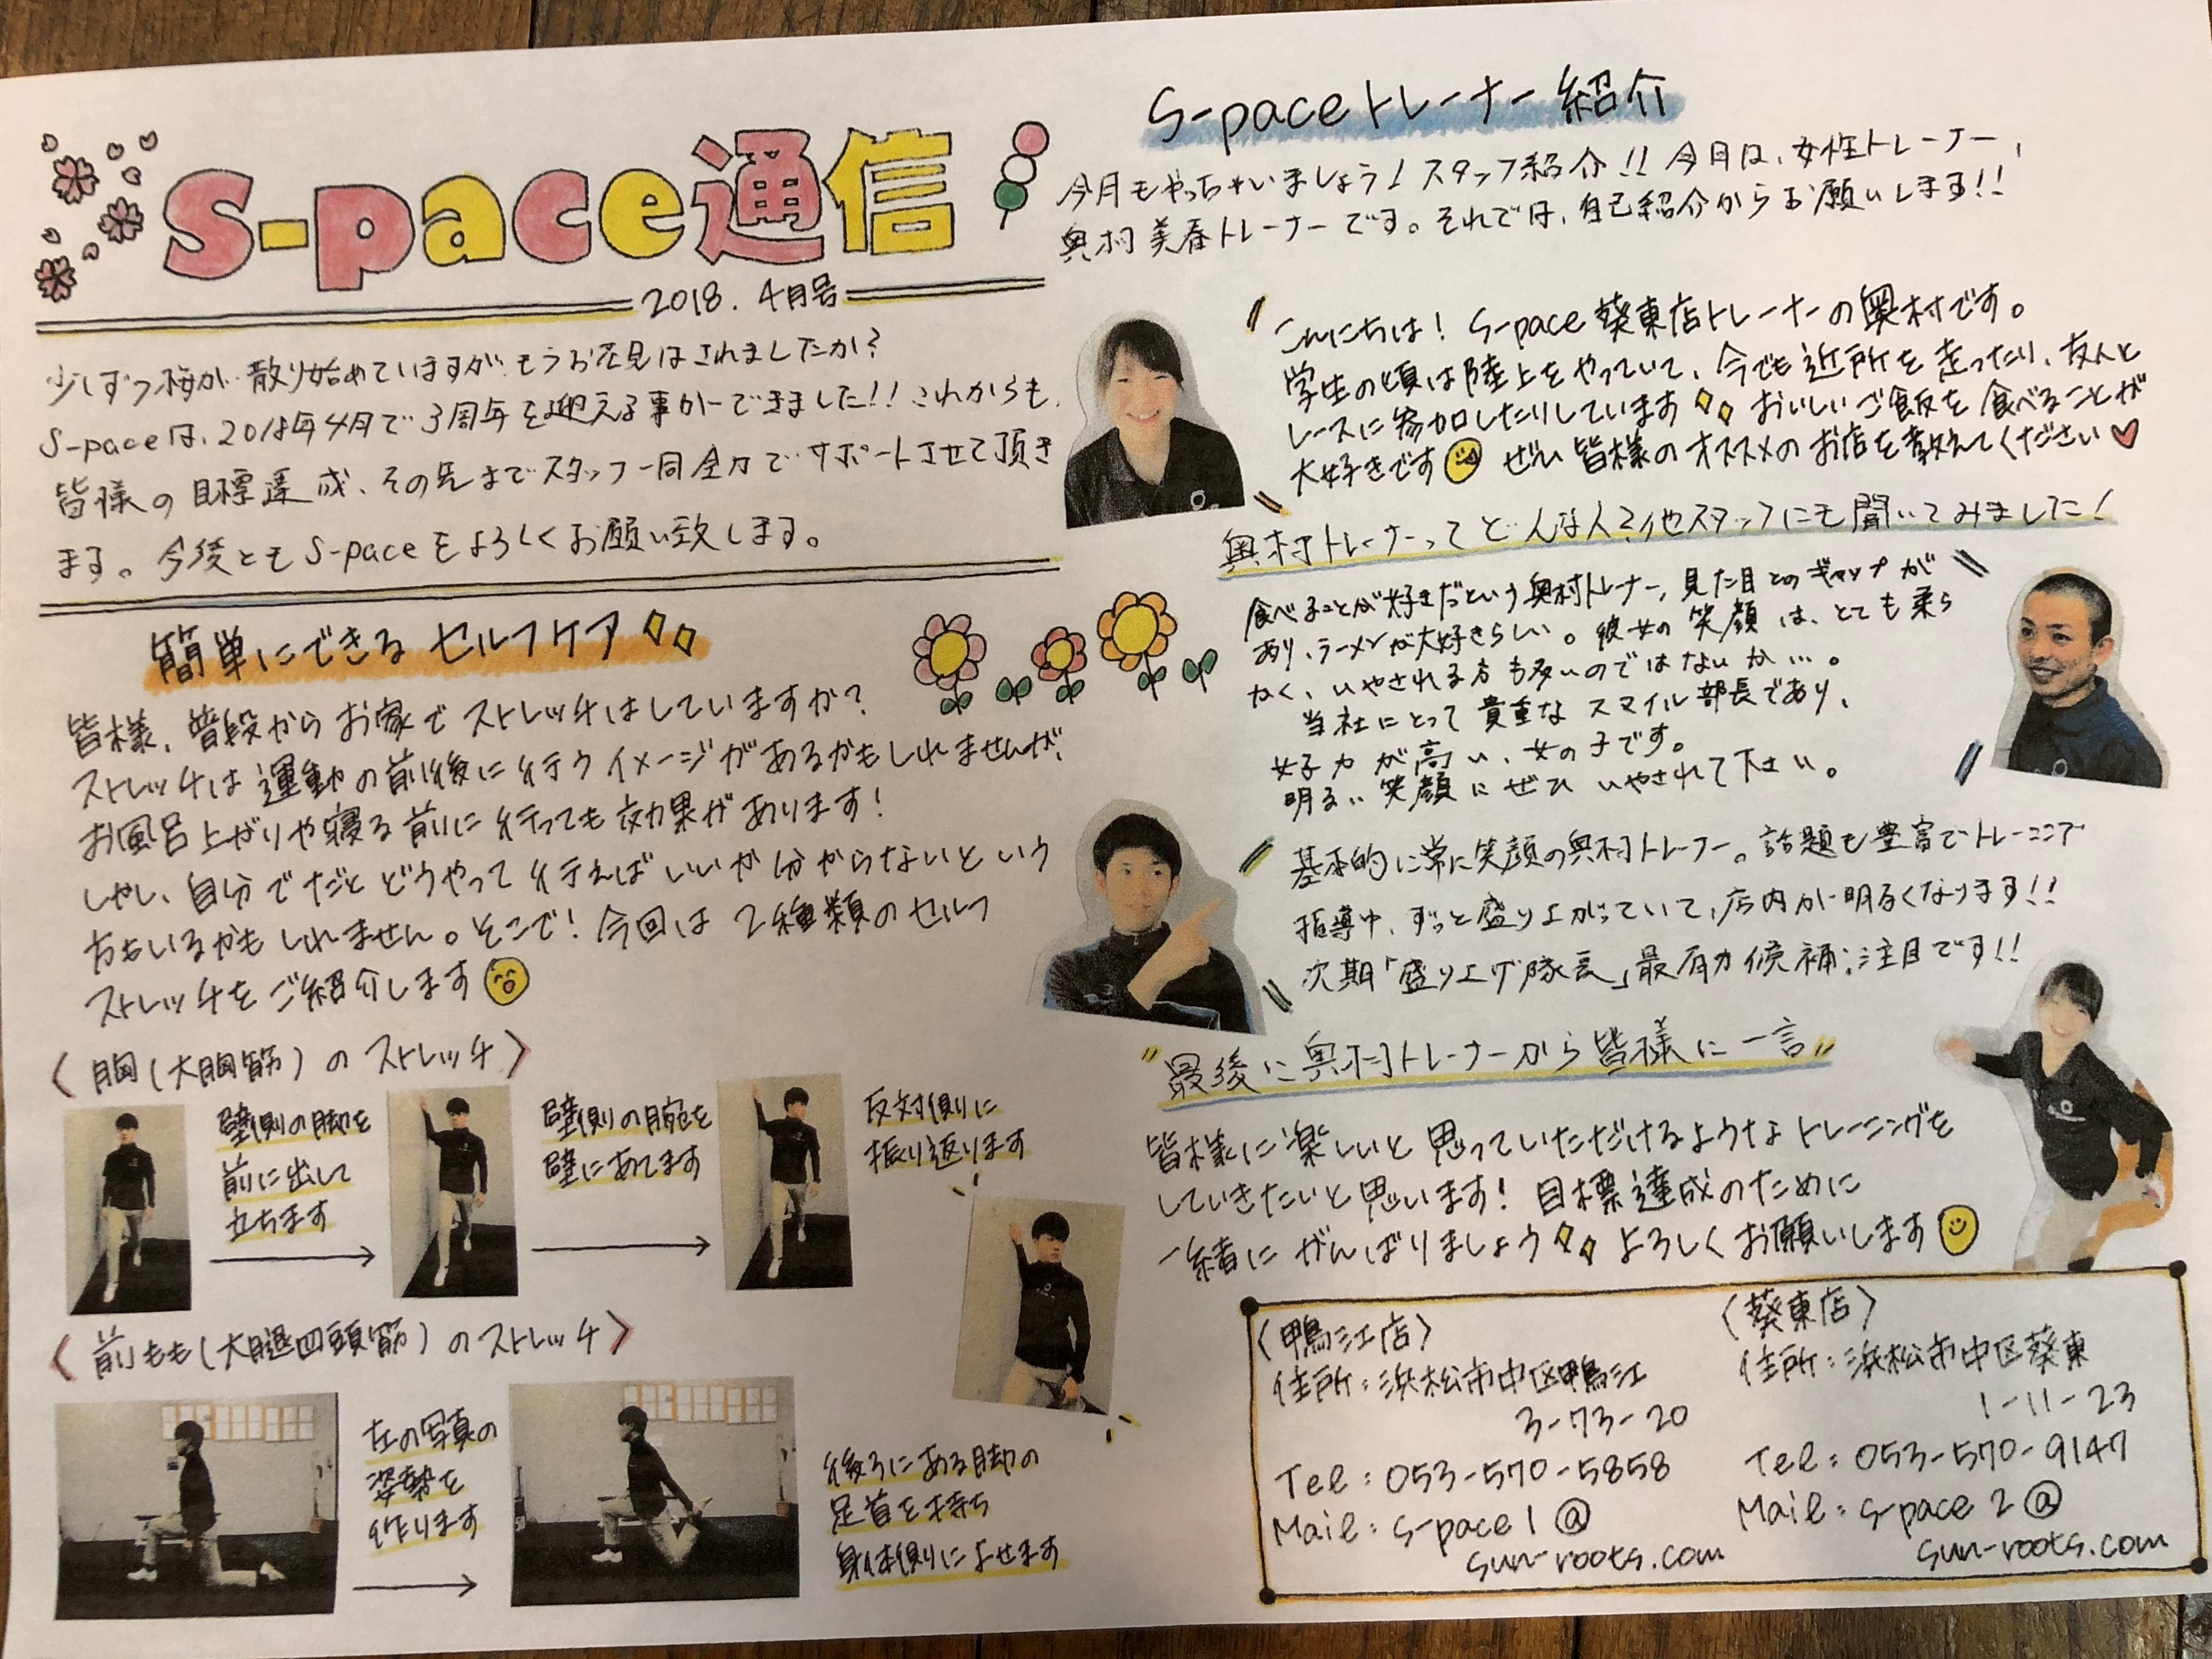 S-pace通信
2018.4月号
少しずつ桜が散り始めていますが、もうお花見はされましたか?
S-paceは、2018年4月で3周年を迎える事ができました!!これからも、
皆様の目標達成、その先までスタッフ一同全力でサポートさせて頂き
ます。今後ともS-paceをよろしくお願い致します。
簡単にできるセルフケア
皆様、普段からお家でストレッチはしていますか?
ストレッチは運動の前後に行うイメージがあるかもしれませんが、
お風呂上がりや寝る前に行っても効果があります!
しかし、自分でだとどうやって行えばいいか分からないという
方もいるかもしれません。そこで!今回は2種類のセルフ
ストレッチをご紹介します
〈胸(大胸筋)のストレッチ〉
壁側の脚を
前に出して
立ちます
壁側の腕を
壁にあてます
反対側に
振り返ります
〈前もも(大腿四頭筋)のストレッチ〉
左の写真の
姿勢を
作ります
後ろにある脚の
足首を持ち
身体側によせます
S-paceトレーナー紹介
今月もやっちゃいましょう!スタッフ紹介!!今月は、女性トレーナー、
奥村美春トレーナーです。それでは、自己紹介からお願いします!!
こんにちは!S-pace葵東店トレーナーの奥村です。
学生の頃は陸上をやっていて、今でも近所を走ったり、友人と
レースに参加したりしています おいしいご飯を食べることが
大好きです ぜひ皆様のオススメのお店を教えてください♥
奥村トレーナーってどんな人?他スタッフにも聞いてみました!
食べることが好きだという奥村トレーナー、見た目とのギャップが
あり、ラーメンが大好きらしい。彼女の笑顔は、とても柔ら
かく、いやされる方も多いのではないか…。
当社にとって貴重なスマイル部長であり、
女子力が高い、女の子です。
明るい笑顔にぜひいやされて下さい。
基本的に常に笑顔の奥村トレーナー。話題も豊富でトレーニング
指導中、ずっと盛り上がっていて、店内が明るくなります!!
次期「盛り上げ隊長」最有力候補。注目です!!
"最後に奥村トレーナーから皆様に一言"
皆様に楽しいと思っていただけるようなトレーニングを
していきたいと思います!目標達成のために
一緒にがんばりましょう よろしくお願いします
〈鴨江店〉
住所:浜松市中区鴨江
3-73-20
Tel:053-570-5858
Mail:s-pace1@
sun-roots.com
〈葵東店〉
住所:浜松市中区葵東
1-11-23
Tel:053-570-9147
Mail:s-pace2@
sun-roots.com